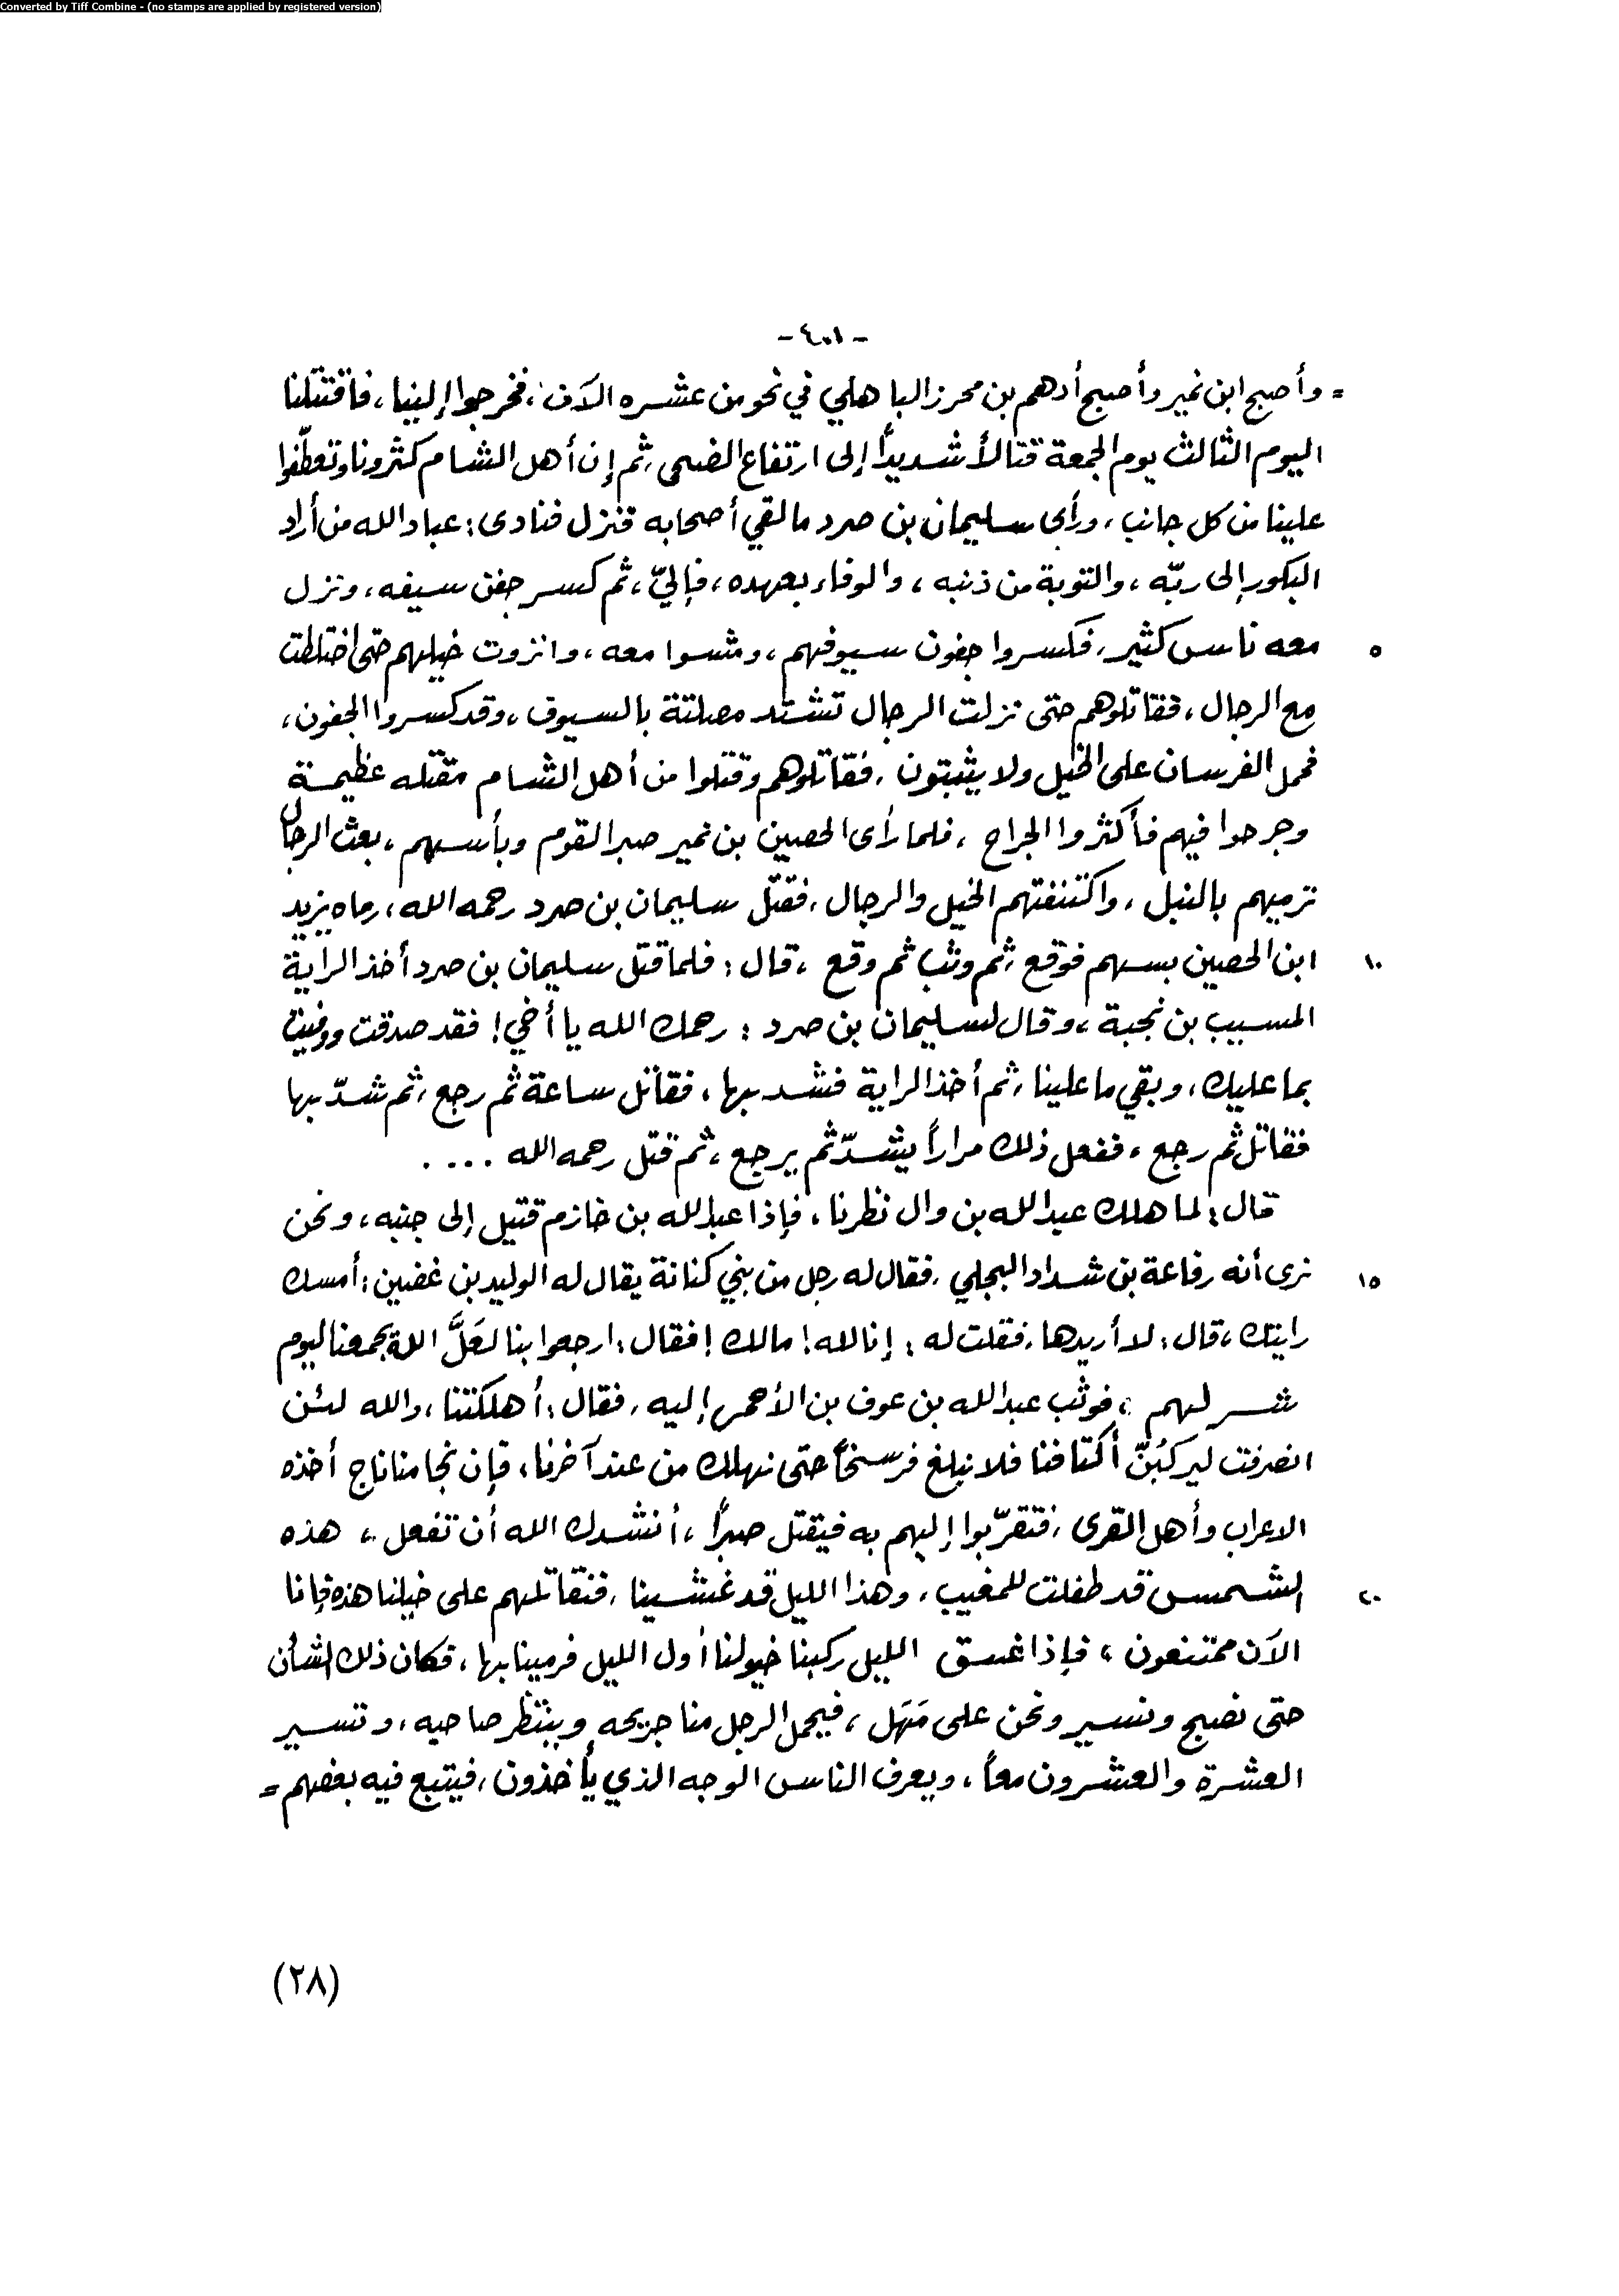 Converted by Tiff Combine - (no stamps are applied by registered version)
- ٤٠١ -
= وأصبح ابن نمير وأصبح أدهم بن محرز الباهلي في نحو من عشره الآف ، فخرجوا إلينا ، فاقتتلنا
اليوم الثالث يوم الجمعة قتالاً شديداً إلى ارتفاع الضحى ، ثم إن أهل الشام كثرونا وتعطّفوا
علينا من كل جانب ، ورأى سليمان بن صرد ما لقي أصحابه فنزل فنادى : عباد الله من أراد
البكور إلى ربّه ، والتوبة من ذنبه ، والوفاء بعهده ، فإليّ ، ثم كسر جفن سيفه ، ونزل
معه ناس كثير ، فكسروا جفون سيوفهم ، ومشوا معه ، وانزوت خيلهم حتى اختلطت ٥
مع الرجال ، فقاتلوهم حتى نزلت الرجال تشتد مصلتة بالسيوف ، وقد كسروا الجفون ،
فحمل الفرسان على الخيل ولا يثبتون ، فقاتلوهم وقتلوا من أهل الشام مقتله عظيمة
وجرحوا فيهم فأكثروا الجراح ، فلما رأى الحصين بن نمير صبر القوم وبأسهم ، بعث الرجال
ترميهم بالنبل ، واكتنفتهم الخيل والرجال ، فقتل سليمان بن صرد رحمه الله ، رماه يزيد
ابن الحصين بسهم فوقع ، ثم وثب ثم وقع ، قال : فلما قتل سليمان بن صرد أخذ الراية ١٠
المسيب بن نجبة ، وقال لسليمان بن صرد : رحمك الله يا أخي ! فقد صدقت ووفيت
بما عليك ، وبقي ما علينا ، ثم أخذ الراية فشد بها ، فقاتل ساعة ثم رجع ، ثم شدّ بها
فقاتل ثم رجع ، ففعل ذلك مراراً يشدّ ثم يرجع ، ثم قتل رحمه الله ....
قال : لما هلك عبد الله بن وال نظرنا ، فإذا عبد الله بن خازم قتيل إلى جنبه ، ونحن
نرى أنه رفاعة بن شداد البجلي ، فقال له رجل من بني كنانة يقال له الوليد بن غضين : أمسك ١٥
رايتك ، قال : لا أريدها ، فقلت له : إنا لله ! مالك ! فقال : ارجعوا بنا لعَلَّ الله يجمعنا ليوم
شر لهم ، فوثب عبد الله بن عوف بن الأحمر إليه ، فقال : أهلكتنا ، والله لئن
انصرفت ليركبُنّ أكتافنا فلا نبلغ فرسخاً حتى نهلك من عند آخرنا ، فإن نجا منا ناج أخذه
الاعراب وأهل القرى ، فتقرّبوا إليهم به فيقتل صبراً ، أنشدك الله أن تفعل ، هذه
الشمس قد طفلت للمغيب ، وهذا الليل قد غشينا ، فنقاتلهم على خيلنا هذه فإنا ٢٠
الآن ممتنعون ، فإذا غسق الليل ركبنا خيولنا أول الليل فرمينا بها ، فكان ذلك الشأن
حتى نصبح ونسير ونحن على مَهَل ، فيحمل الرجل منا جريحه وينتظر صاحبه ، وتسير
العشرة والعشرون معاً ، ويعرف الناس الوجه الذي يأخذون ، فيتبع فيه بعضهم =
(٢٨)